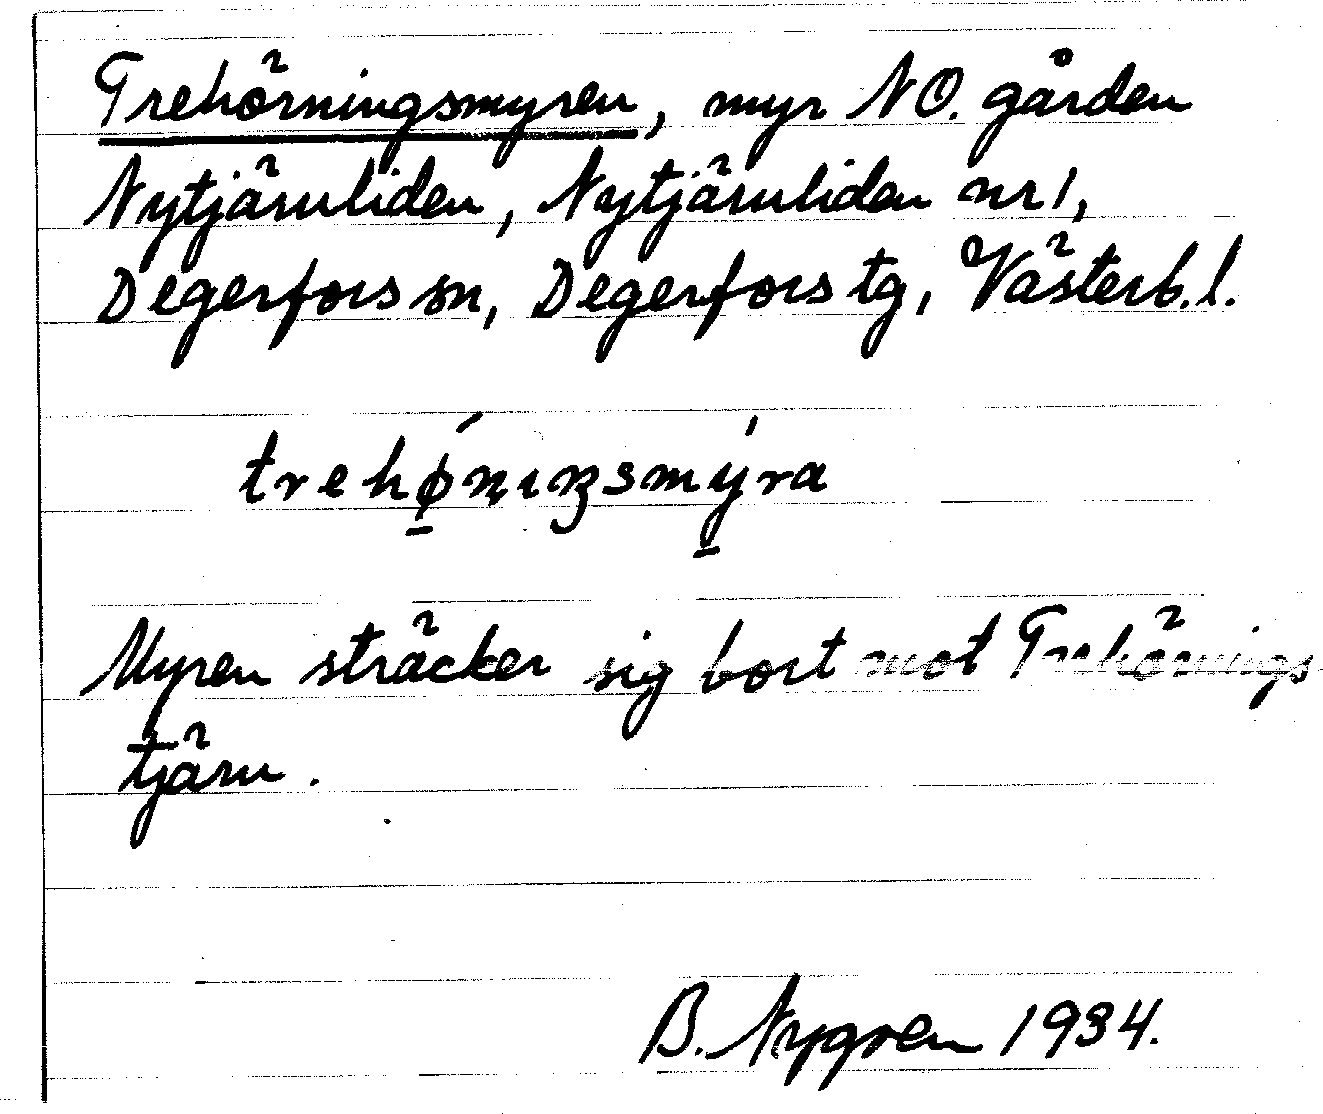 Trehörningsmyren, myr NO. gården
Nytjärnliden, Nytjärnliden nr 1,
Degerfors sn, Degerfors tg, Västerb. l.
trehǿ̱ṇıŋsmý̱ra
Myren sträcker sig bort mot Trehörnings
tjärn.
B. Nygren 1934.